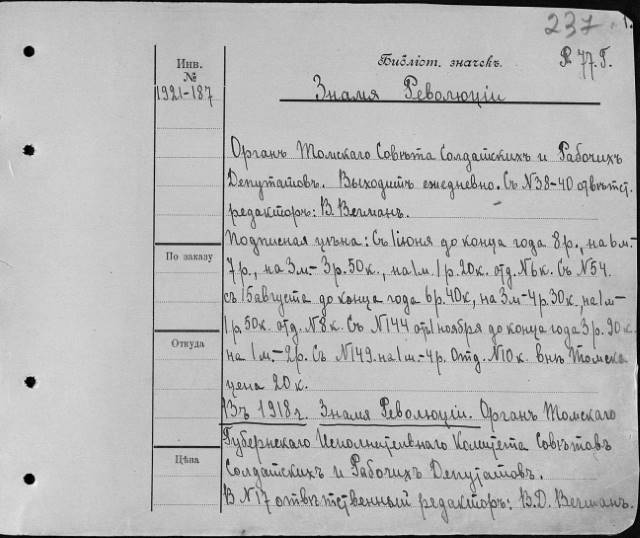 237. 1.
Инв.
№
1921-187
Библіот. значекъ. Р 77.Г.
Знамя Революціи
Органъ Томскаго Совѣта Солдатскихъ и Рабочихъ
Депутатовъ. Выходитъ ежедневно. Съ №38-40 отвѣтст.
редакторъ: В. Вегманъ.
Подписная цѣна: Съ 1 іюня до конца года 8 р., на 6 м.-
По заказу
7р., на 3м.- 3р. 50к., на 1м. 1р. 20к. отд. №6к. Съ №54.
съ 15 августа до конца года 6р. 40к, на 3м-4р. 30к, на 1м-
1р. 50к. отд. №8к. Съ №144 от 1 ноября до конца года 3р. 90к.
Откуда
на 1м.-2р. Съ №149. на 1м.-4р. Отд. №10к. внѣ Томска
цена 20 к.
Въ 1918 г. Знамя Революціи. Органъ Томскаго
Губернскаго Исполнительнаго Комитета Совѣтовъ
Цѣна
Солдатскихъ и Рабочихъ Депутатовъ.
В №17 отвѣтственный редакторъ: В.Д. Вегманъ.